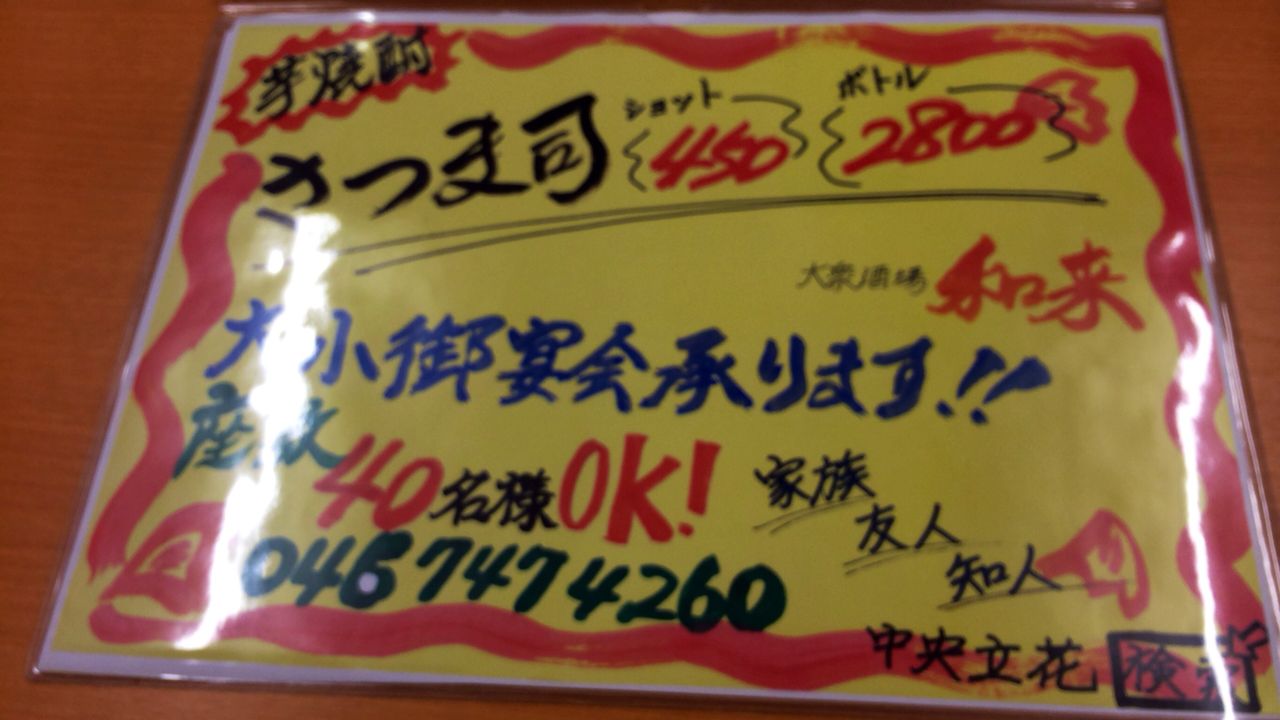 芋焼酎
さつま司 ショット 450 ボトル 2800
大衆酒場 和来
大小御宴会承ります!!
座敷 40名様OK!
家族
友人
知人
0467474260
中央立花 検索